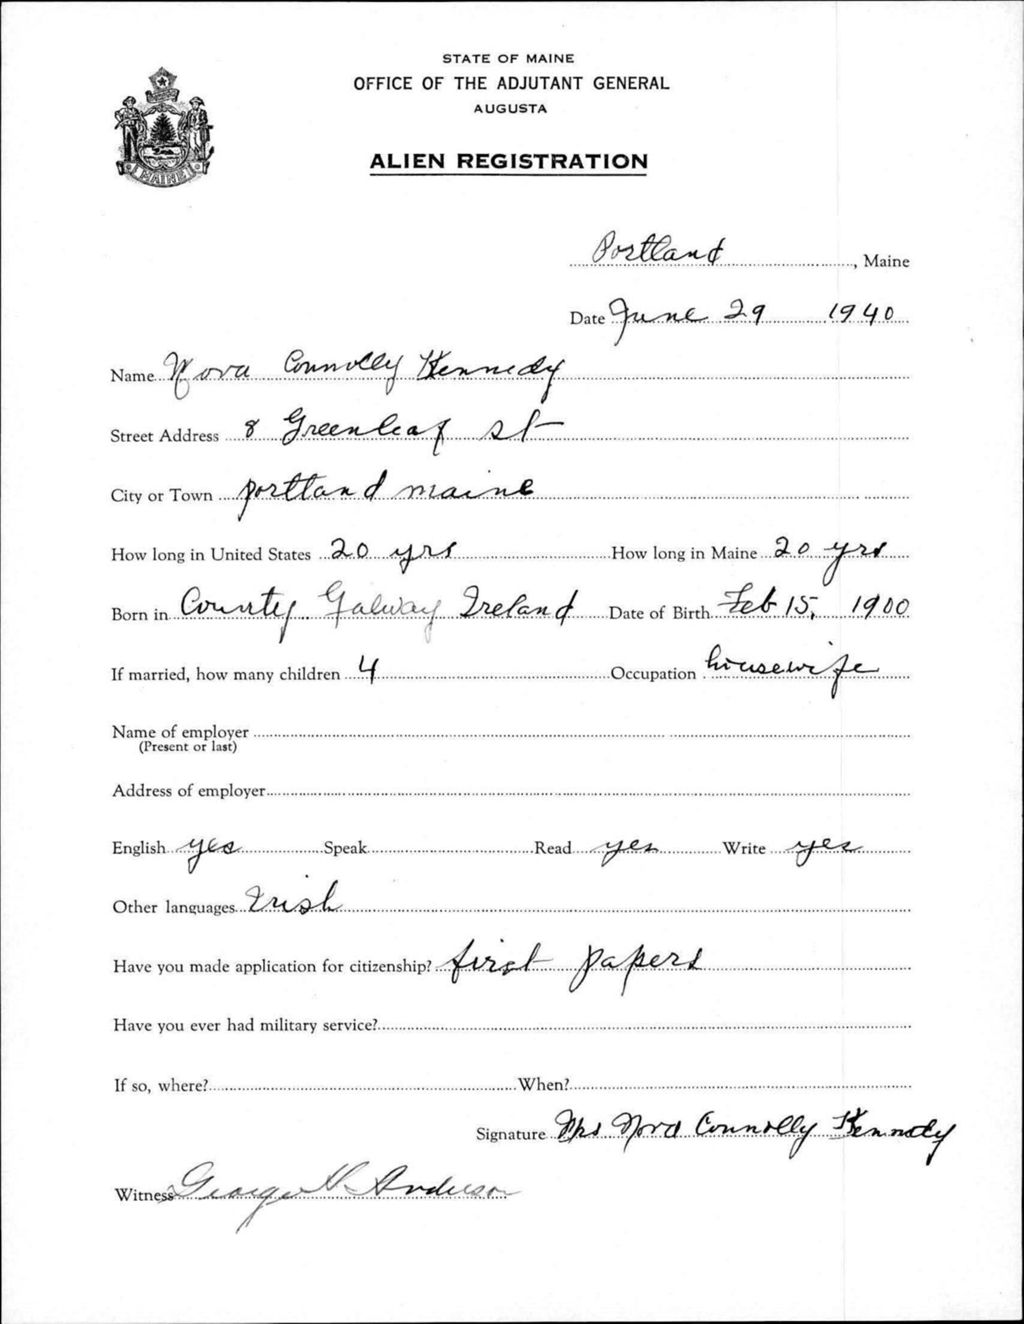 STATE OF MAINE
OFFICE OF THE ADJUTANT GENERAL
AUGUSTA
ALIEN REGISTRATION
MAINE
Portland, Maine
Date June 29 1940
Name Nora Connolly Kennedy
Street Address 8 Greenleaf St
City or Town portland maine
How long in United States 20 yrs How long in Maine 20 yrs
Born in County Galway Ireland Date of Birth Feb 15, 1900
If married, how many children 4 Occupation housewife
Name of employer
(Present or last)
Address of employer
English yes Speak Read yes Write yes
Other languages Irish
Have you made application for citizenship? first papers
Have you ever had military service?
If so, where? When?
Signature Mrs Nora Connolly Kennedy
Witness George H. Anderson